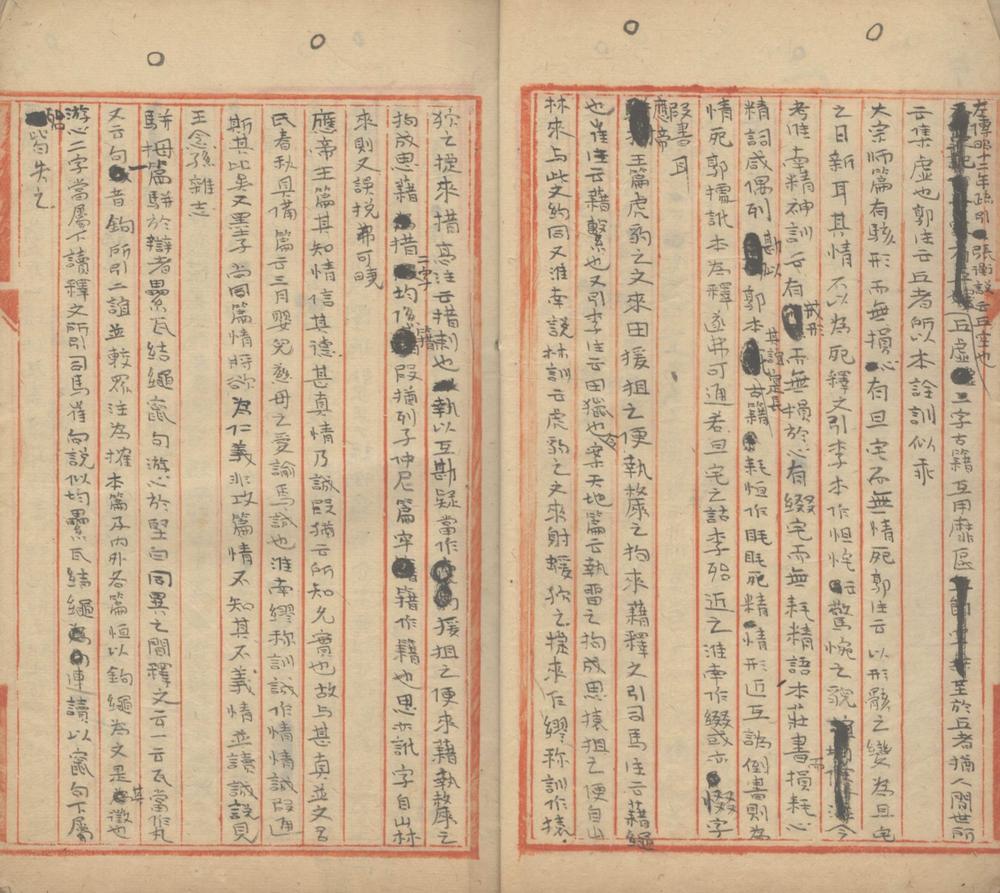 左傳昭十二年疏引張衡說云丘空也
丘虛二字古籍互用靡區至於丘者猶人間世所
云集虛也郭注云丘者所以本詮訓似乖
大宗師篇有駭形而無損心有旦宅而無情死郭注云以形骸之變為旦宅
之日新耳其情不以為死釋文引李本作怛恠云驚惋之貌今
考淮南精神訓云有戒形而無損於心有綴宅而無耗精語本莊書損耗心
精詞咸偶列勘似郭本古籍耗恒作眊眊死精情形近互譌倒書則為
情死郭據訛本為釋遂弗可通若旦宅之詁李殆近之淮南作綴或亦惙字
叚書耳
應帝王篇虎豹之文來田猨狙之便執斄之狗來藉釋文引司馬注云藉繩
也崔注云藉繫也又引李注云田獵也今案天地篇云執留之狗成思猿狙之便自山
林來與此文約同又淮南說林訓云虎豹之文來射蝯狖之捷來乍繆稱訓作猿
狖之捷來措高注云措刺也執以互勘疑當作猨狙之便來藉執斄之
狗成思藉措二字均後籍叚猶列子仲尼篇宰籍作籍也思亦訛字自山林
來則又誤挩弗可曉
應帝王篇其知情信其德甚真情乃誠叚猶云所知允實也故與甚真並文呂
氏春秋具備篇云三月嬰兒慈母之愛諭焉誠也淮南繆稱訓誠作情情誠叚通
斯其比矣又墨子尚同篇情將欲為仁義非攻篇情不知其不義情並讀誠說見
王念孫雜志
駢拇篇駢於辯者纍瓦結繩竄句游心於堅白同異之間釋文云一云瓦當作丸
又云句音鉤所引二誼並較眾注為搉本篇及內外各篇恒以鉤繩為文是其徵也
游心二字當屬下讀釋文所引司馬崔向說似均纍瓦結繩連讀以竄句下屬
殆皆失之